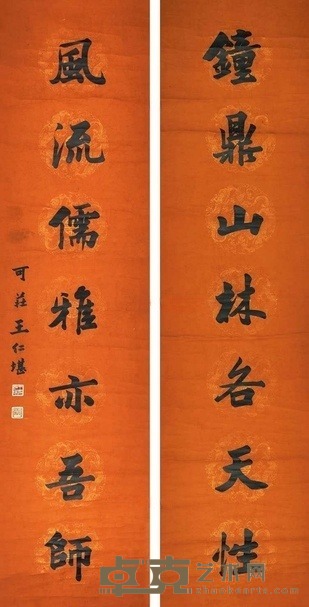 鐘鼎山林各天性
風流儒雅亦吾師
可莊王仁堪
卓克艺术网